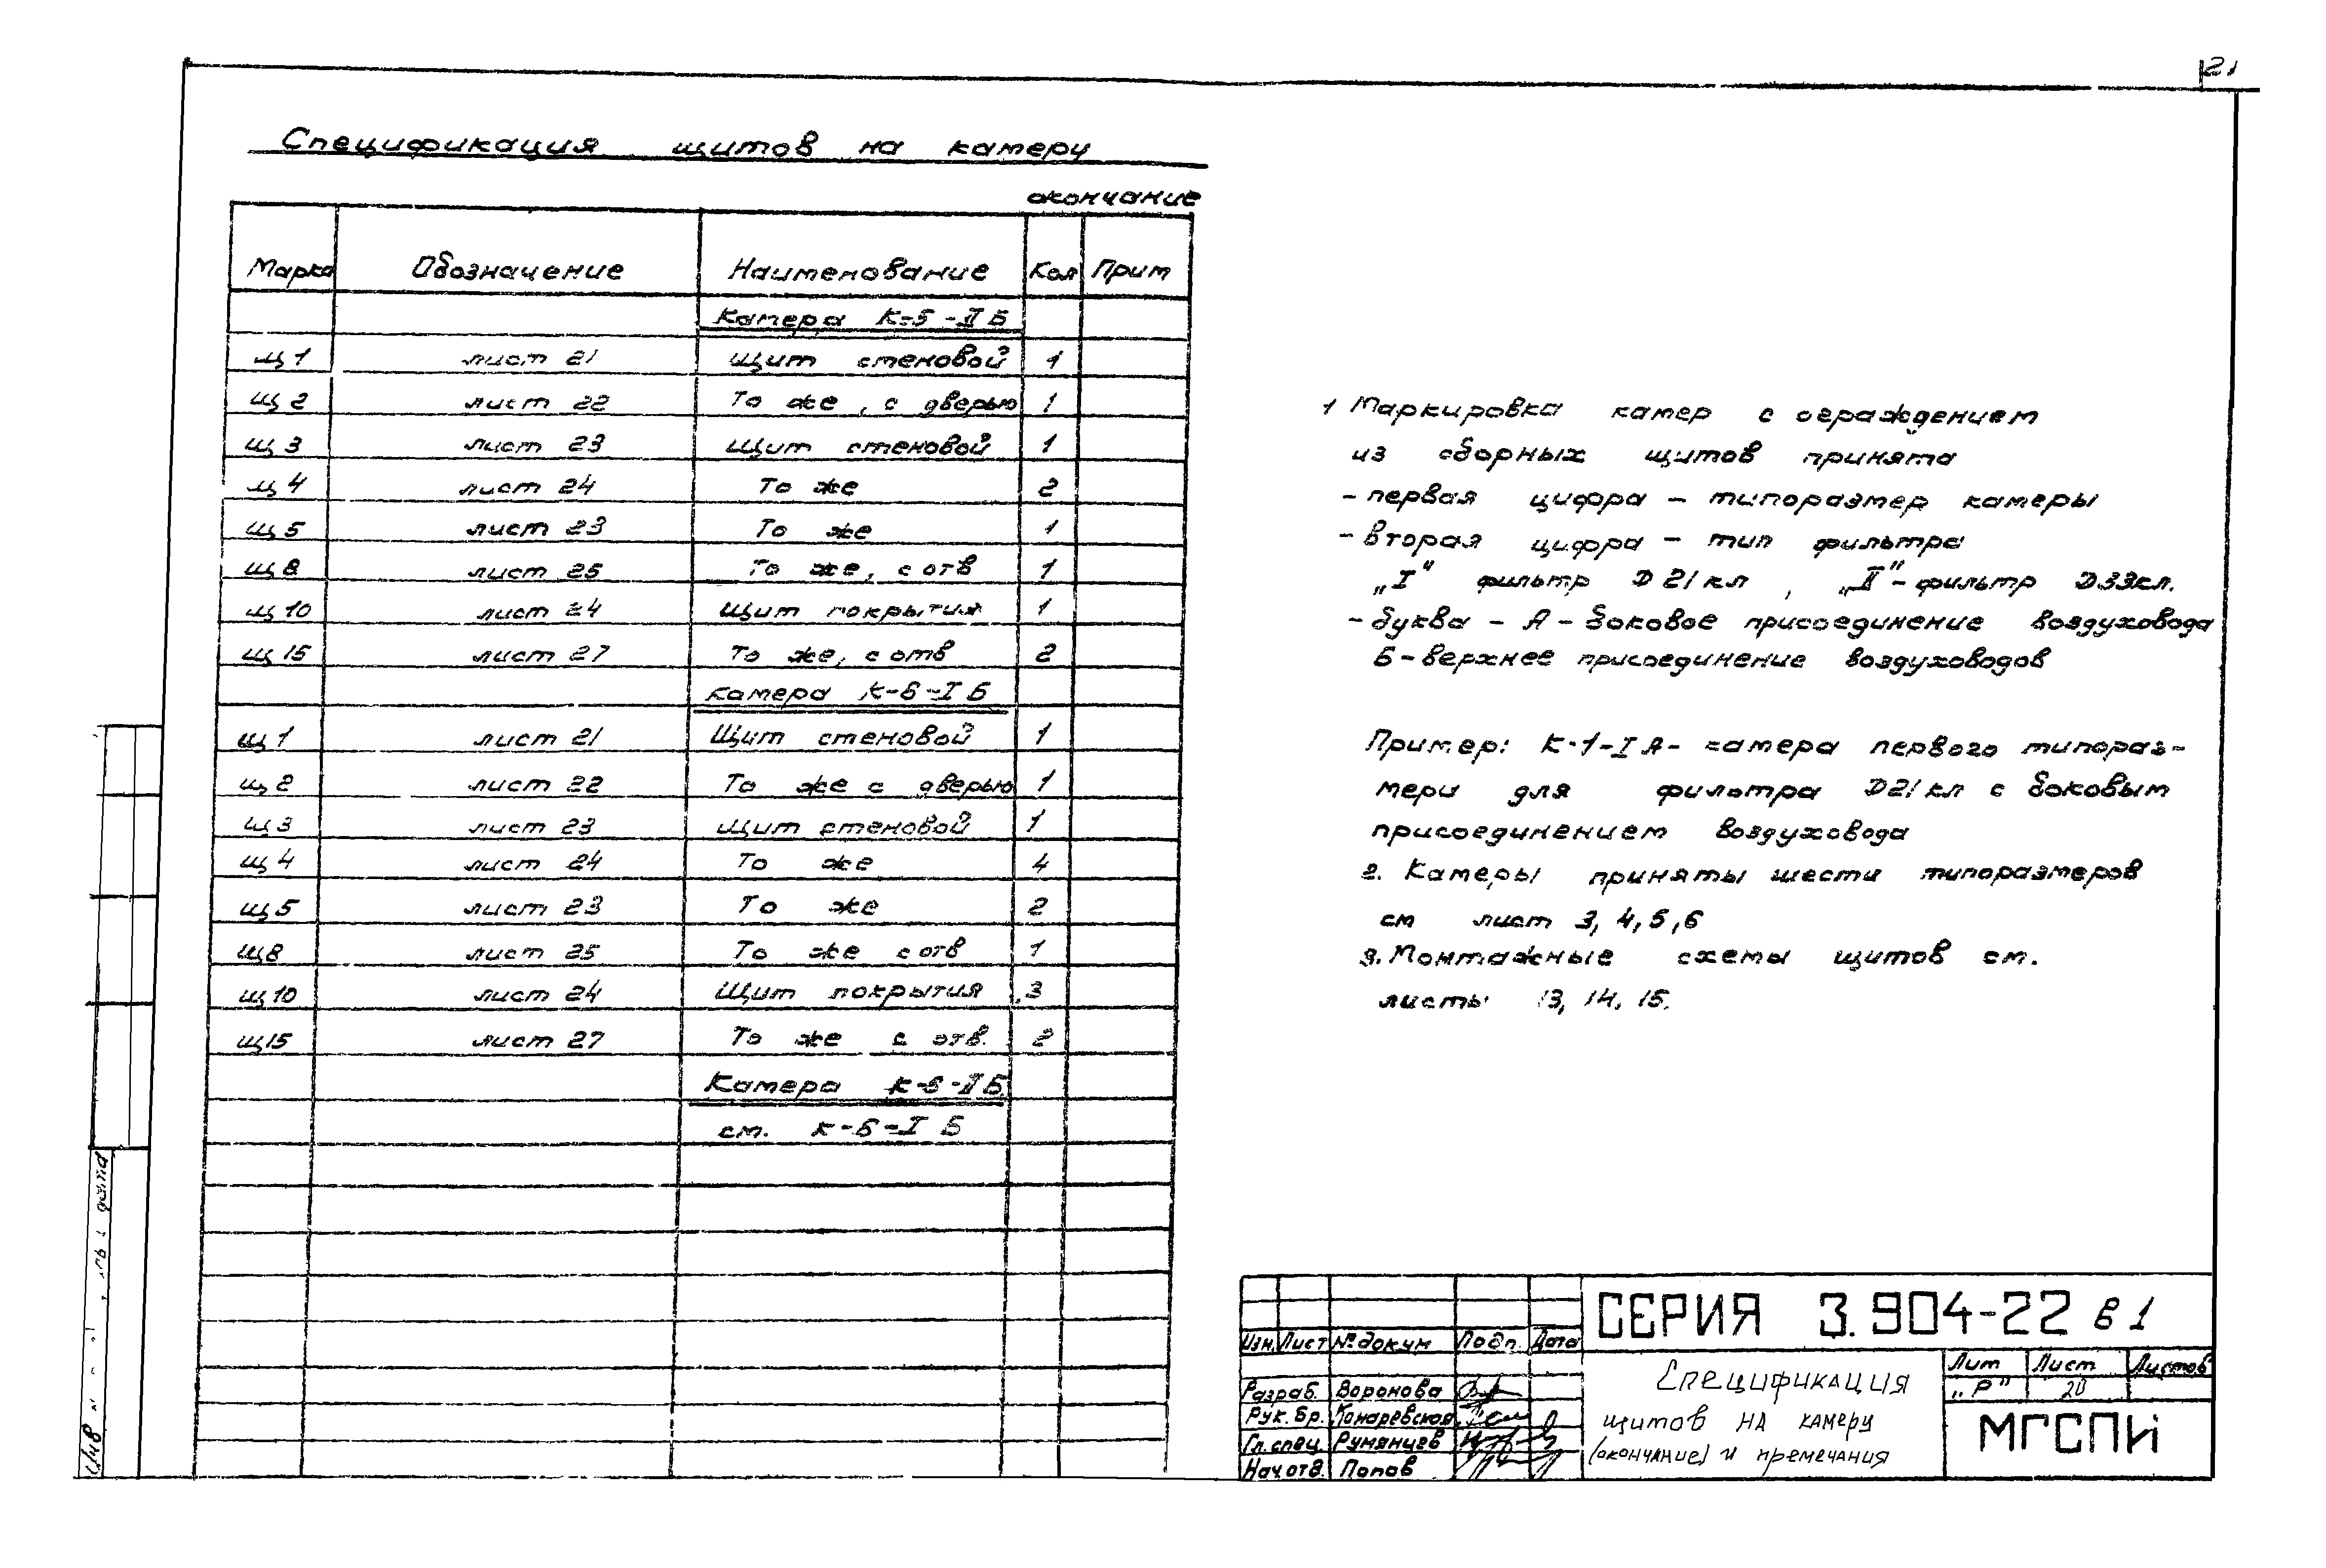 21
Спецификация щитов на камеру
окончание
Марка Обозначение Наименование Кол Прим
Камера К-5-II Б
Щ1 лист 21 Щит стеновой 1
Щ2 лист 22 То же, с дверью 1
Щ3 лист 23 Щит стеновой 1
Щ4 лист 24 То же 2
Щ5 лист 23 То же 1
Щ8 лист 25 То же, с отв 1
Щ10 лист 24 Щит покрытия 1
Щ15 лист 27 То же, с отв 2
Камера К-6-I Б
Щ1 лист 21 Щит стеновой 1
Щ2 лист 22 То же с дверью 1
Щ3 лист 23 Щит стеновой 1
Щ4 лист 24 То же 4
Щ5 лист 23 То же 2
Щ8 лист 25 То же с отв 1
Щ10 лист 24 Щит покрытия 3
Щ15 лист 27 То же с отв. 2
Камера К-6-II Б
см. К-6-I Б
1 Маркировка камер с ограждением
из сборных щитов принята
- первая цифра - типоразмер камеры
- вторая цифра - тип фильтра
„I" фильтр Д21кл , „II"- фильтр Д33кл.
- буква - А - боковое присоединение воздуховода
Б - верхнее присоединение воздуховодов
Пример: К-1-I А- камера первого типораз-
мера для фильтра Д21кл с боковым
присоединением воздуховода
2. Камеры приняты шести типоразмеров
см лист 3, 4, 5, 6
3. Монтажные схемы щитов см.
листы 13, 14, 15.
Изм. Лист № докум Подп. Дата
Разраб. Воронова
Рук. бр. Комаревская
Гл. спец. Румянцев
Нач. отд. Попов
СЕРИЯ 3.904-22 в 1
Спецификация
щитов на камеру
(окончание) и премечания
Лит Лист Листов
„Р" 20
МГСПИ
Инв